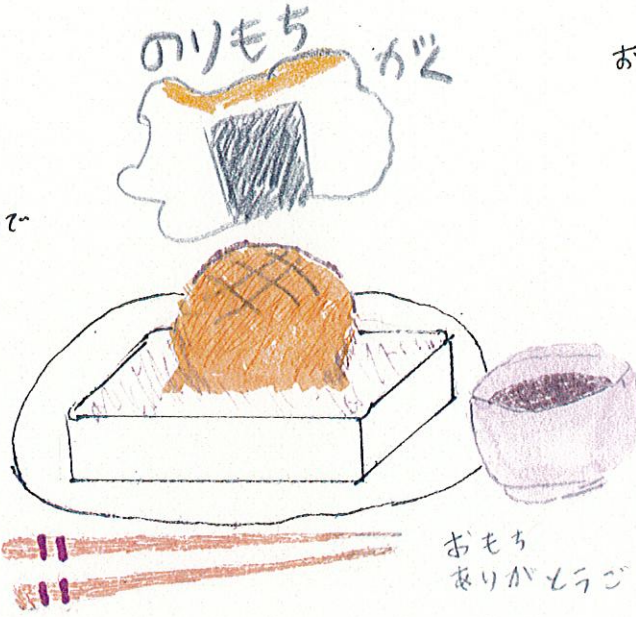 のりもち
がく
お
で
おもち
ありがとうご